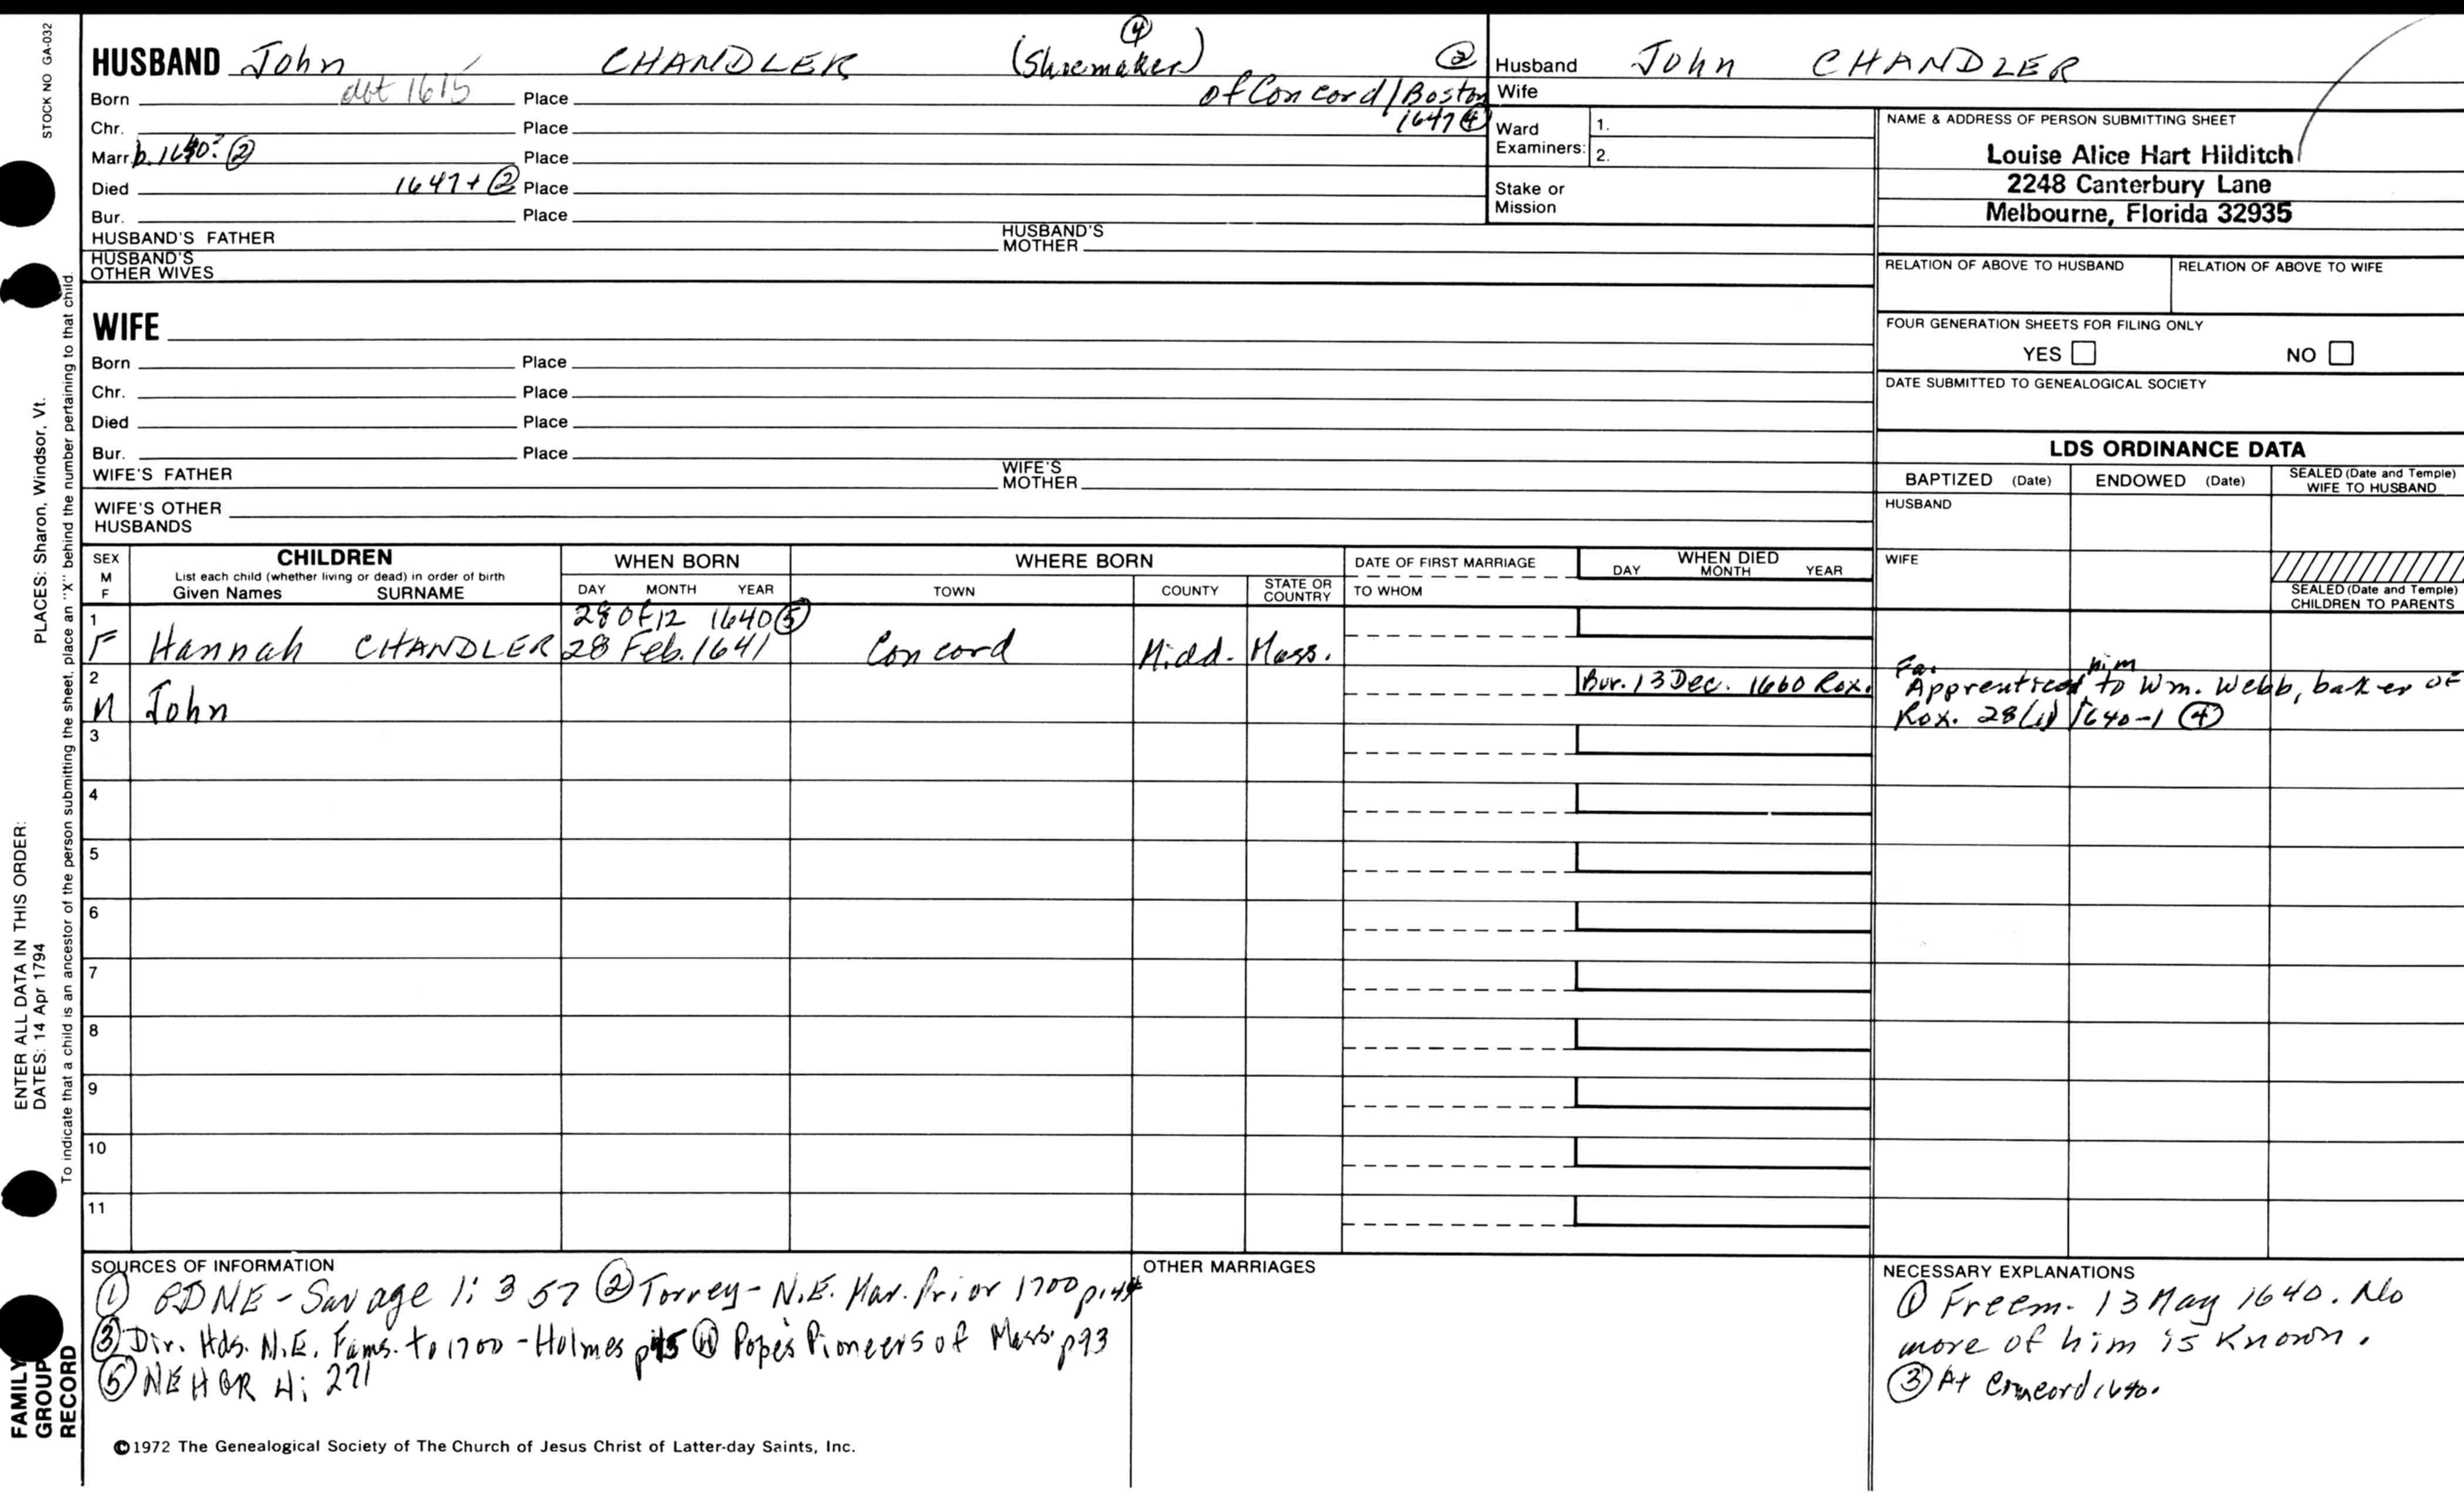 STOCK NO GA-032
HUSBAND John CHANDLER (Shoemaker) ④ ②
Born abt 1615 Place of Concord/Boston
Chr. Place 1647 ④
Marr. b. 1640? ② Place
Died 1647+ ② Place
Bur. Place
HUSBAND'S FATHER HUSBAND'S MOTHER
HUSBAND'S OTHER WIVES
Husband John CHANDLER
Wife
Ward Examiners: 1.
2.
Stake or Mission
NAME & ADDRESS OF PERSON SUBMITTING SHEET
Louise Alice Hart Hilditch
2248 Canterbury Lane
Melbourne, Florida 32935
RELATION OF ABOVE TO HUSBAND RELATION OF ABOVE TO WIFE
FOUR GENERATION SHEETS FOR FILING ONLY
YES NO
DATE SUBMITTED TO GENEALOGICAL SOCIETY
WIFE
Born Place
Chr. Place
Died Place
Bur. Place
WIFE'S FATHER WIFE'S MOTHER
WIFE'S OTHER HUSBANDS
LDS ORDINANCE DATA
BAPTIZED (Date) ENDOWED (Date) SEALED (Date and Temple) WIFE TO HUSBAND
HUSBAND
WIFE
SEALED (Date and Temple) CHILDREN TO PARENTS
SEX M F
CHILDREN
List each child (whether living or dead) in order of birth
Given Names SURNAME
WHEN BORN
DAY MONTH YEAR
WHERE BORN
TOWN COUNTY STATE OR COUNTRY
DATE OF FIRST MARRIAGE
TO WHOM
WHEN DIED
DAY MONTH YEAR
1 28 of 12 1640 ⑤
F Hannah CHANDLER 28 Feb. 1641 Concord Midd. Mass.
2 Bur. 13 Dec. 1660 Rox. Fa. Apprenticed him to Wm. Webb, baker of
M John Rox. 28(1) 1640-1 ④
3
4
5
6
7
8
9
10
11
SOURCES OF INFORMATION
① GDNE - Savage 1: 357 ② Torrey - N.E. Mar. Prior 1700 p.144
③ Dir. Hds. N.E. Fams. to 1700 - Holmes p45 ④ Pope's Pioneers of Mass. p93
⑤ NEHGR 4: 271
OTHER MARRIAGES
NECESSARY EXPLANATIONS
① Freem. 13 May 1640. No
more of him is known.
③ At Concord 1640.
©1972 The Genealogical Society of The Church of Jesus Christ of Latter-day Saints, Inc.
FAMILY GROUP RECORD
ENTER ALL DATA IN THIS ORDER:
DATES: 14 Apr 1794 PLACES: Sharon, Windsor, Vt.
To indicate that a child is an ancestor of the person submitting the sheet, place an "X" behind the number pertaining to that child.